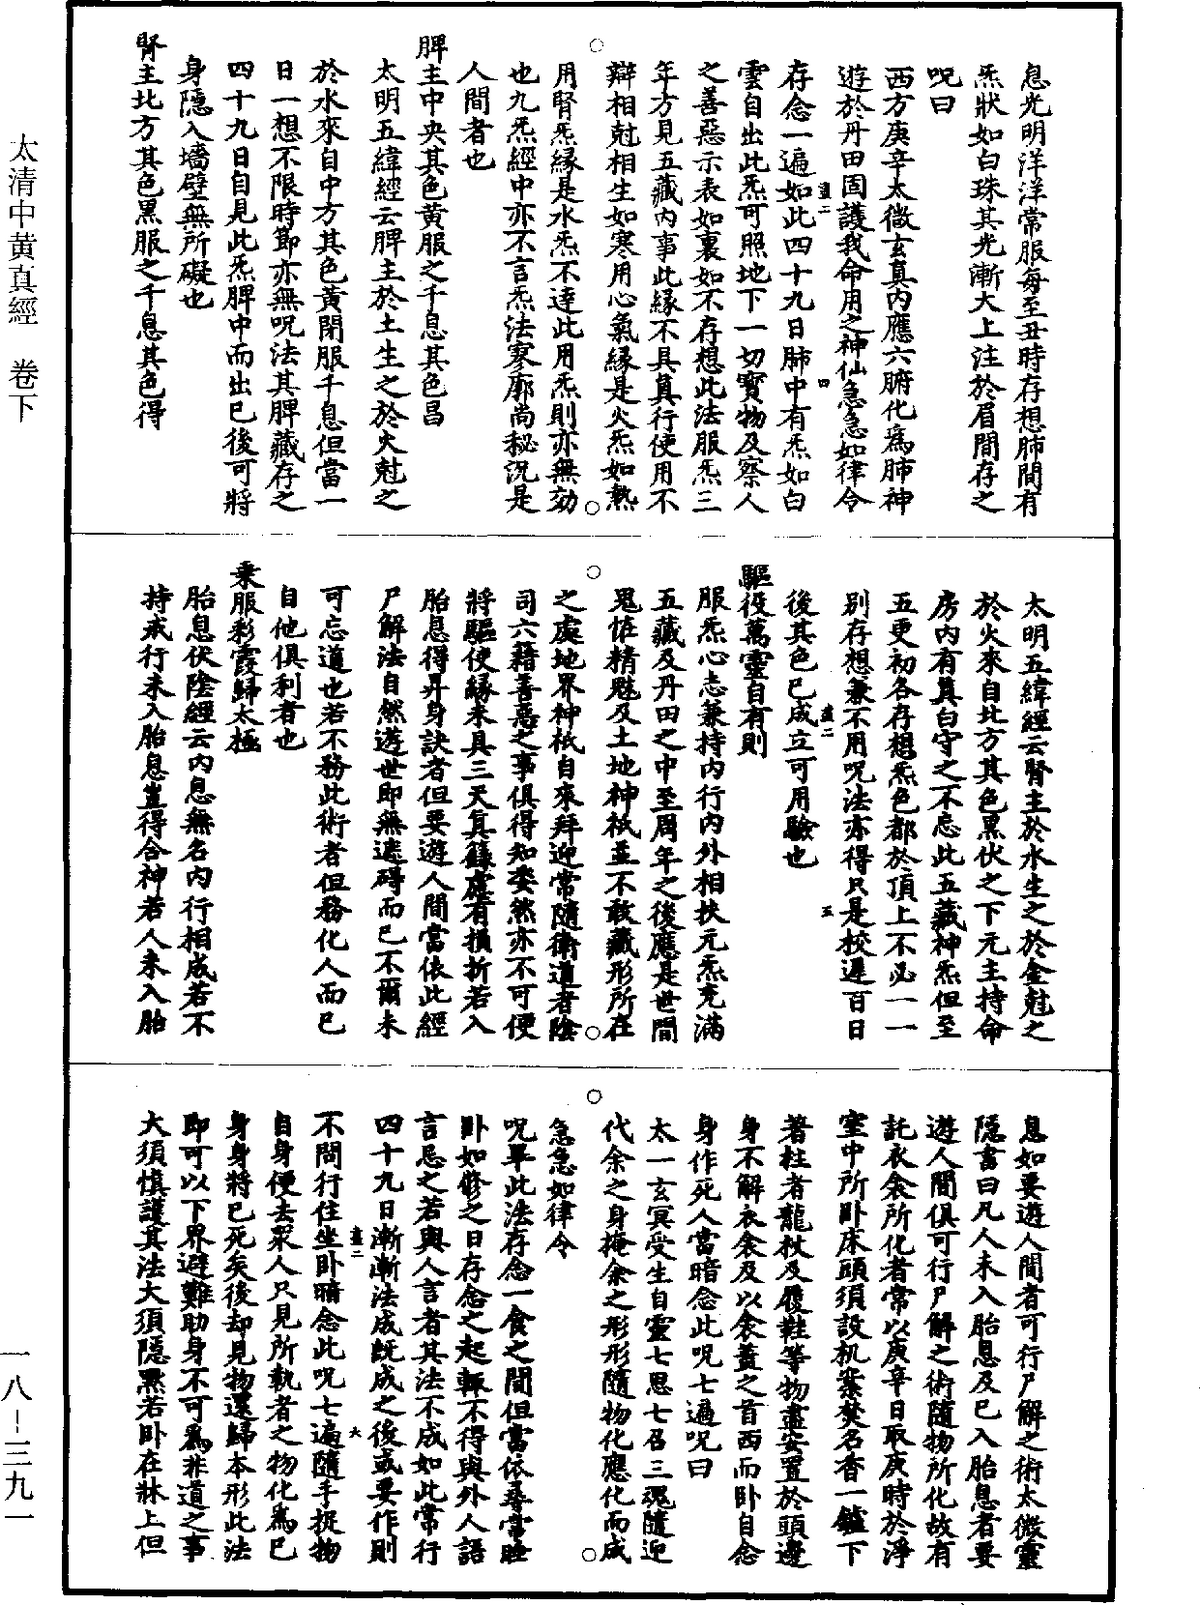 息光明洋洋常服每至丑時存想肺間有
炁狀如白珠其光漸大上注於眉間存之
呪曰
西方庚辛太微玄真內應六腑化爲肺神
遊於丹田固護我命用之神仙急急如律令
存念一遍如此四十九日肺中有炁如白
雲自出此炁可照地下一切寶物及察人
之善惡示表如裏如不存想此法服炁三
年方見五藏內事此緣不具真行使用不
辯相尅相生如寒用心氣緣是火炁如熱
用腎炁緣是水炁不達此用炁則亦無効
也九炁經中亦不言炁法寥廓尚秘況是
人間者也
脾主中央其色黃服之千息其色昌
太明五緯經云脾主於土生之於火尅之
於水來自中方其色黃閉服千息但當一
日一想不限時節亦無呪法其脾藏存之
四十九日自見此炁脾中而出已後可將
身隱入墻壁無所礙也
腎主北方其色黑服之千息其色得
太明五緯經云腎主於水生之於金尅之
於火來自北方其色黑伏之下元主持命
房內有真白守之不忘此五藏神炁但至
五更初各存想炁色都於頂上不必一一
別存想兼不用呪法亦得只是校遲百日
後其色已成立可用驗也
驅役萬靈自有則
服炁心志兼持內行內外相扶元炁充滿
五藏及丹田之中至周年之後應是世間
鬼恠精魅及土地神祇並不敢藏形所在
之處地界神祇自來拜迎常隨衛道者陰
司六籍善惡之事俱得知委然亦不可便
將驅使緣未具三天真籙處有損折若入
胎息得昇身訣者但要遊人間當依此經
尸解法自然遊世即無遮碍而已不爾未
可忘道也若不務此術者但務化人而已
自他俱利者也
乘服彩霞歸太極
胎息伏陰經云內息無名內行相成若不
持戒行未入胎息豈得合神若人未入胎
息如要遊人間者可行尸解之術太微靈
隱書曰凡人未入胎息及已入胎息者要
遊人間俱可行尸解之術隨物所化故有
託衣衾所化者常以庚辛日取庚時於淨
室中所卧床頭須設机案焚名香一鑪下
著柱者龍杖及履鞋等物盡安置於頭邊
身不解衣衾及以衾蓋之首西而卧自念
身作死人當暗念此呪七遍呪曰
太一玄冥受生自靈七思七召三魂隨迎
代余之身掩余之形形隨物化應化而成
急急如律令
呪畢此法存念一食之間但當依尋常睡
卧如修之日存念之起輒不得與外人語
言忌之若與人言者其法不成如此常行
四十九日漸漸法成既成之後或要作則
不問行住坐卧暗念此呪七遍隨手捉物
自身便去衆人只見所執者之物化爲已
身身將已死矣後却見物還歸本形此法
即可以下界避難助身不可爲非道之事
大須慎護其法大須隱黙若卧在牀上但
太清中黄真經　卷下
一八－三九一